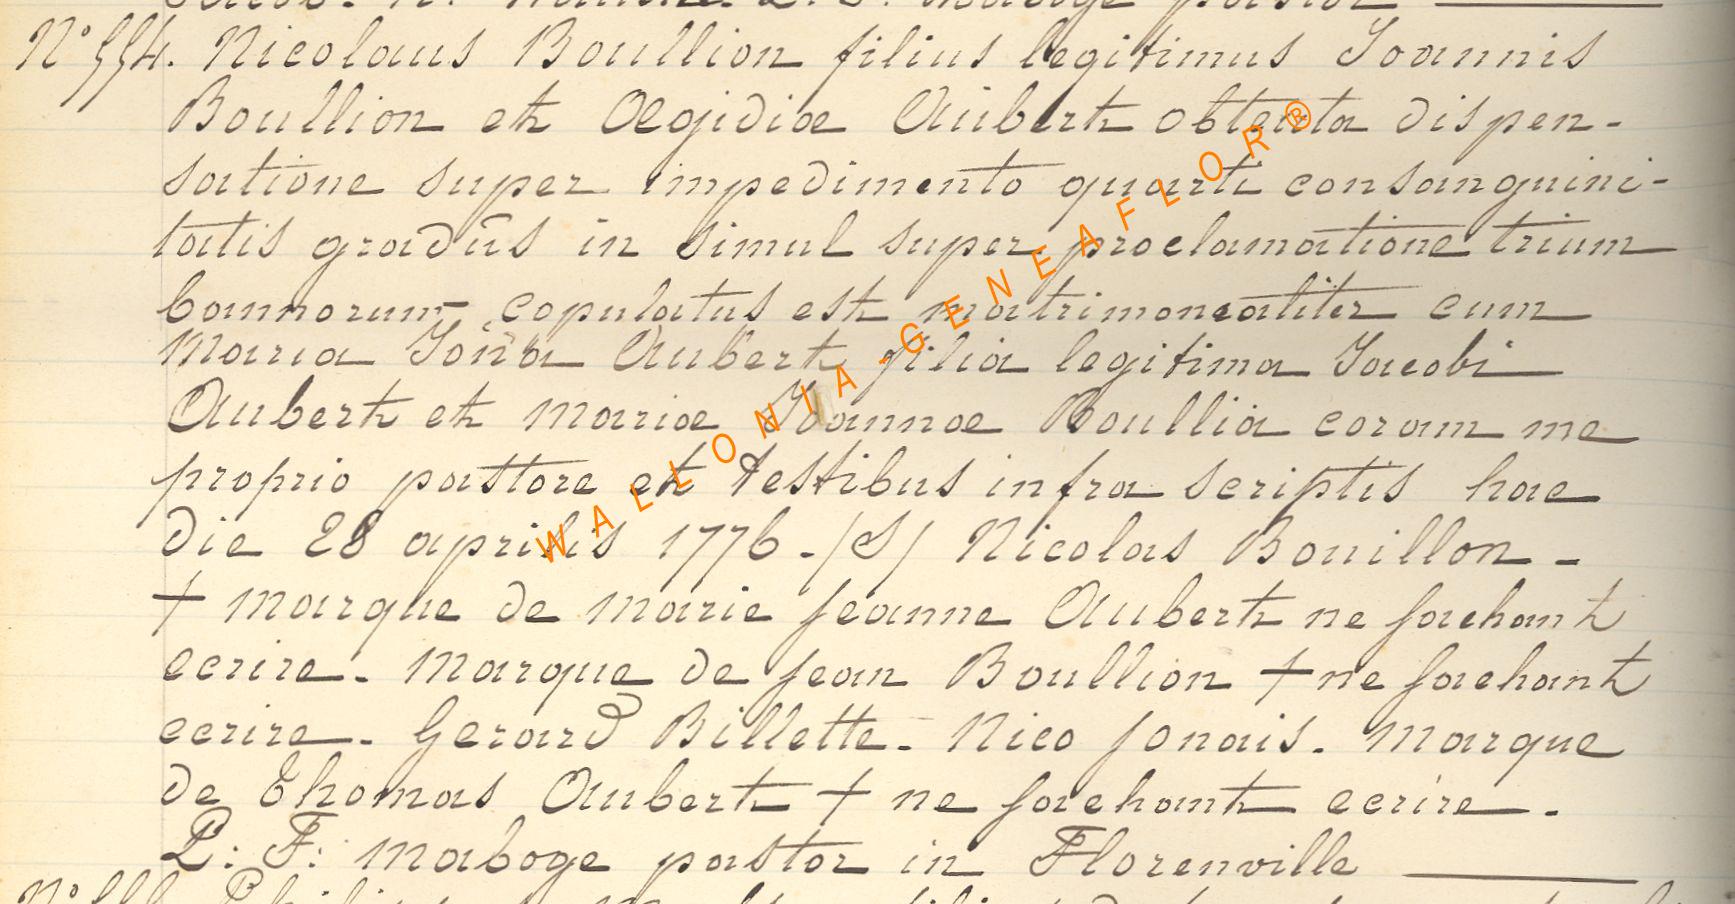 N° 554. Nicolaus Boullion filius legitimus Joannis
Boullion et Œgidiœ Aubert obtenta dispen-
satione super impedimento quarti consanguini-
tatis gradûs in simul super proclamatione trium
bannorum copulatus est matrimonialiter cum
Maria Joña Aubert filia legitima Jacobi
Aubert et mariœ Joannœ Boullia coram me
proprio pastore et testibus infra scriptis hac
die 28 aprilis 1776. /S/ Nicolas Bouillon -
+ marque de marie jeanne Aubert ne sachant
ecrire. Marque de jean Boullion + ne sachant
ecrire. Gerard Billette. Nico jonais. Marque
de Thomas Aubert + ne sachant ecrire.
P: F: maboge pastor in Florenville
WALLONIA-GENEAFLOR®